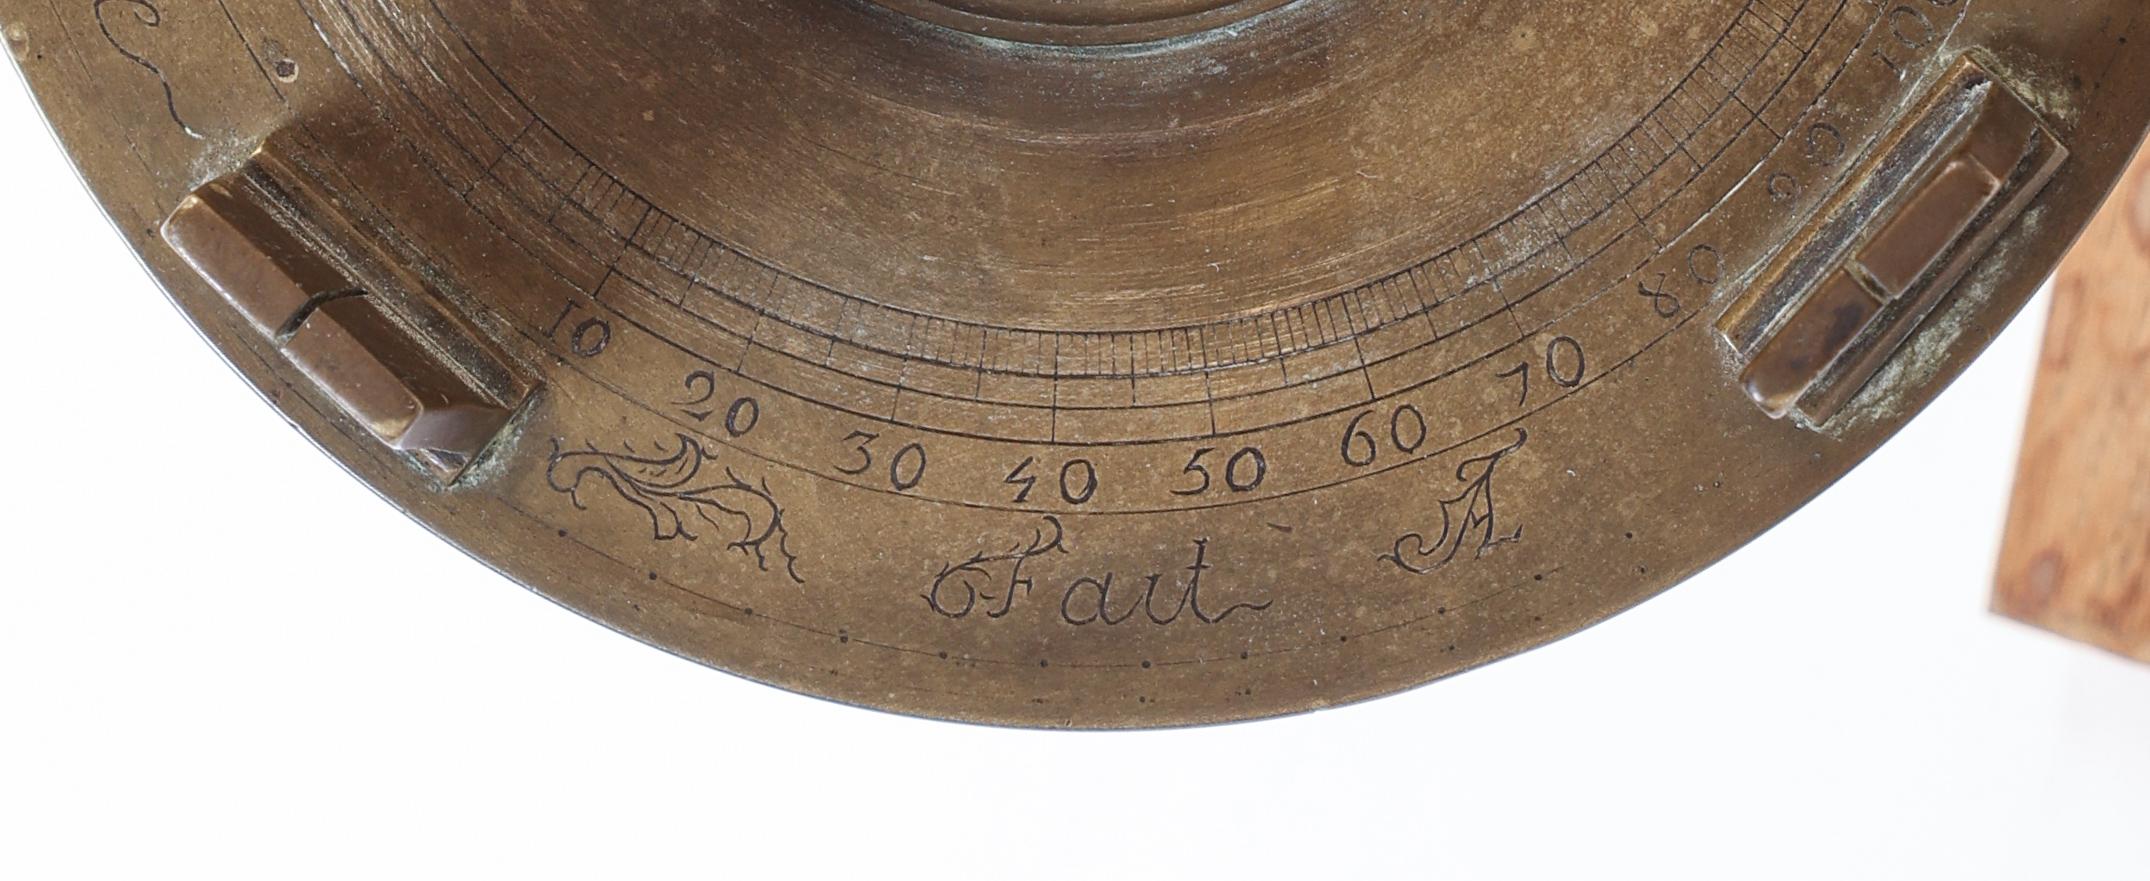 10 20 30 40 50 60 70 80 90 100
Fait A